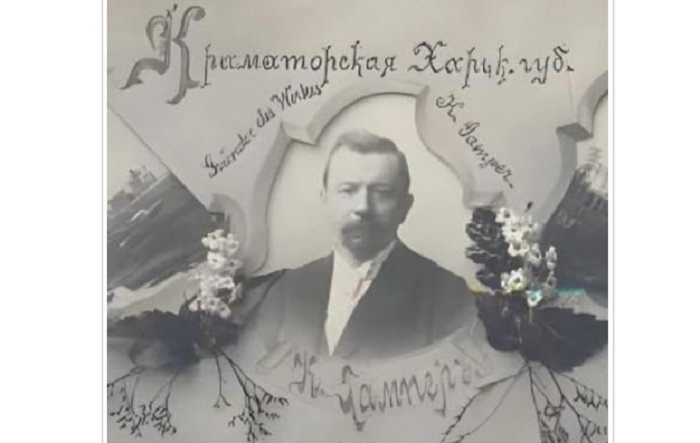 Краматорская Харьк. губ.
Gründer des Werkes
К. Гампер.
К. Гамперъ